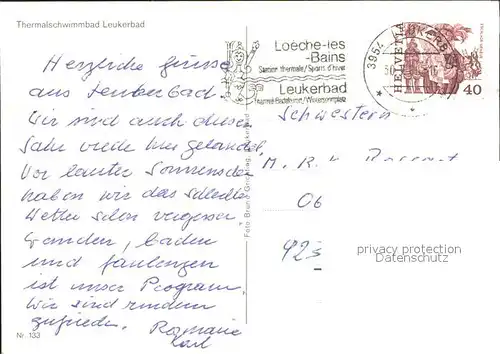 Thermalschwimmbad Leukerbad
Loèche-les
-Bains
Station thermale/Sports d'hiver
Leukerbad
Thermal-Badekurort/Wintersportplatz
3954 LEUKERBAD
HELVETIA
40
Herzliche Grüsse
aus Leukerbad.
Wir sind auch dieses
Jahr wieder hier gelandet
Vor lauter Sonnenschein
haben wir das schlechte
Wetter schon vergessen
Wandern, baden
und faulenzen
ist unser Program
Wir sind rundum
zufrieden. Romarie
Karl
Schwestern
M. R.
06
923
Foto Bruno Grichting, Leukerbad
Nr. 133
privacy protection
Datenschutz